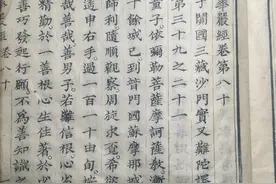 華嚴經卷第八十
于闐國三藏沙門實叉難陀譯
第三十九之二十一
童子。依彌勒菩薩摩訶薩教。漸
十餘城。已到普門國蘇摩那城
師利。隨順觀察。周旋求覓。希欲
遙申右手。過一百一十由旬。
哉善哉。善男子。若離信根。心劣
精勤。於一善根。心生住著。於少
善巧發起行願。不為善知識之
經卷八十